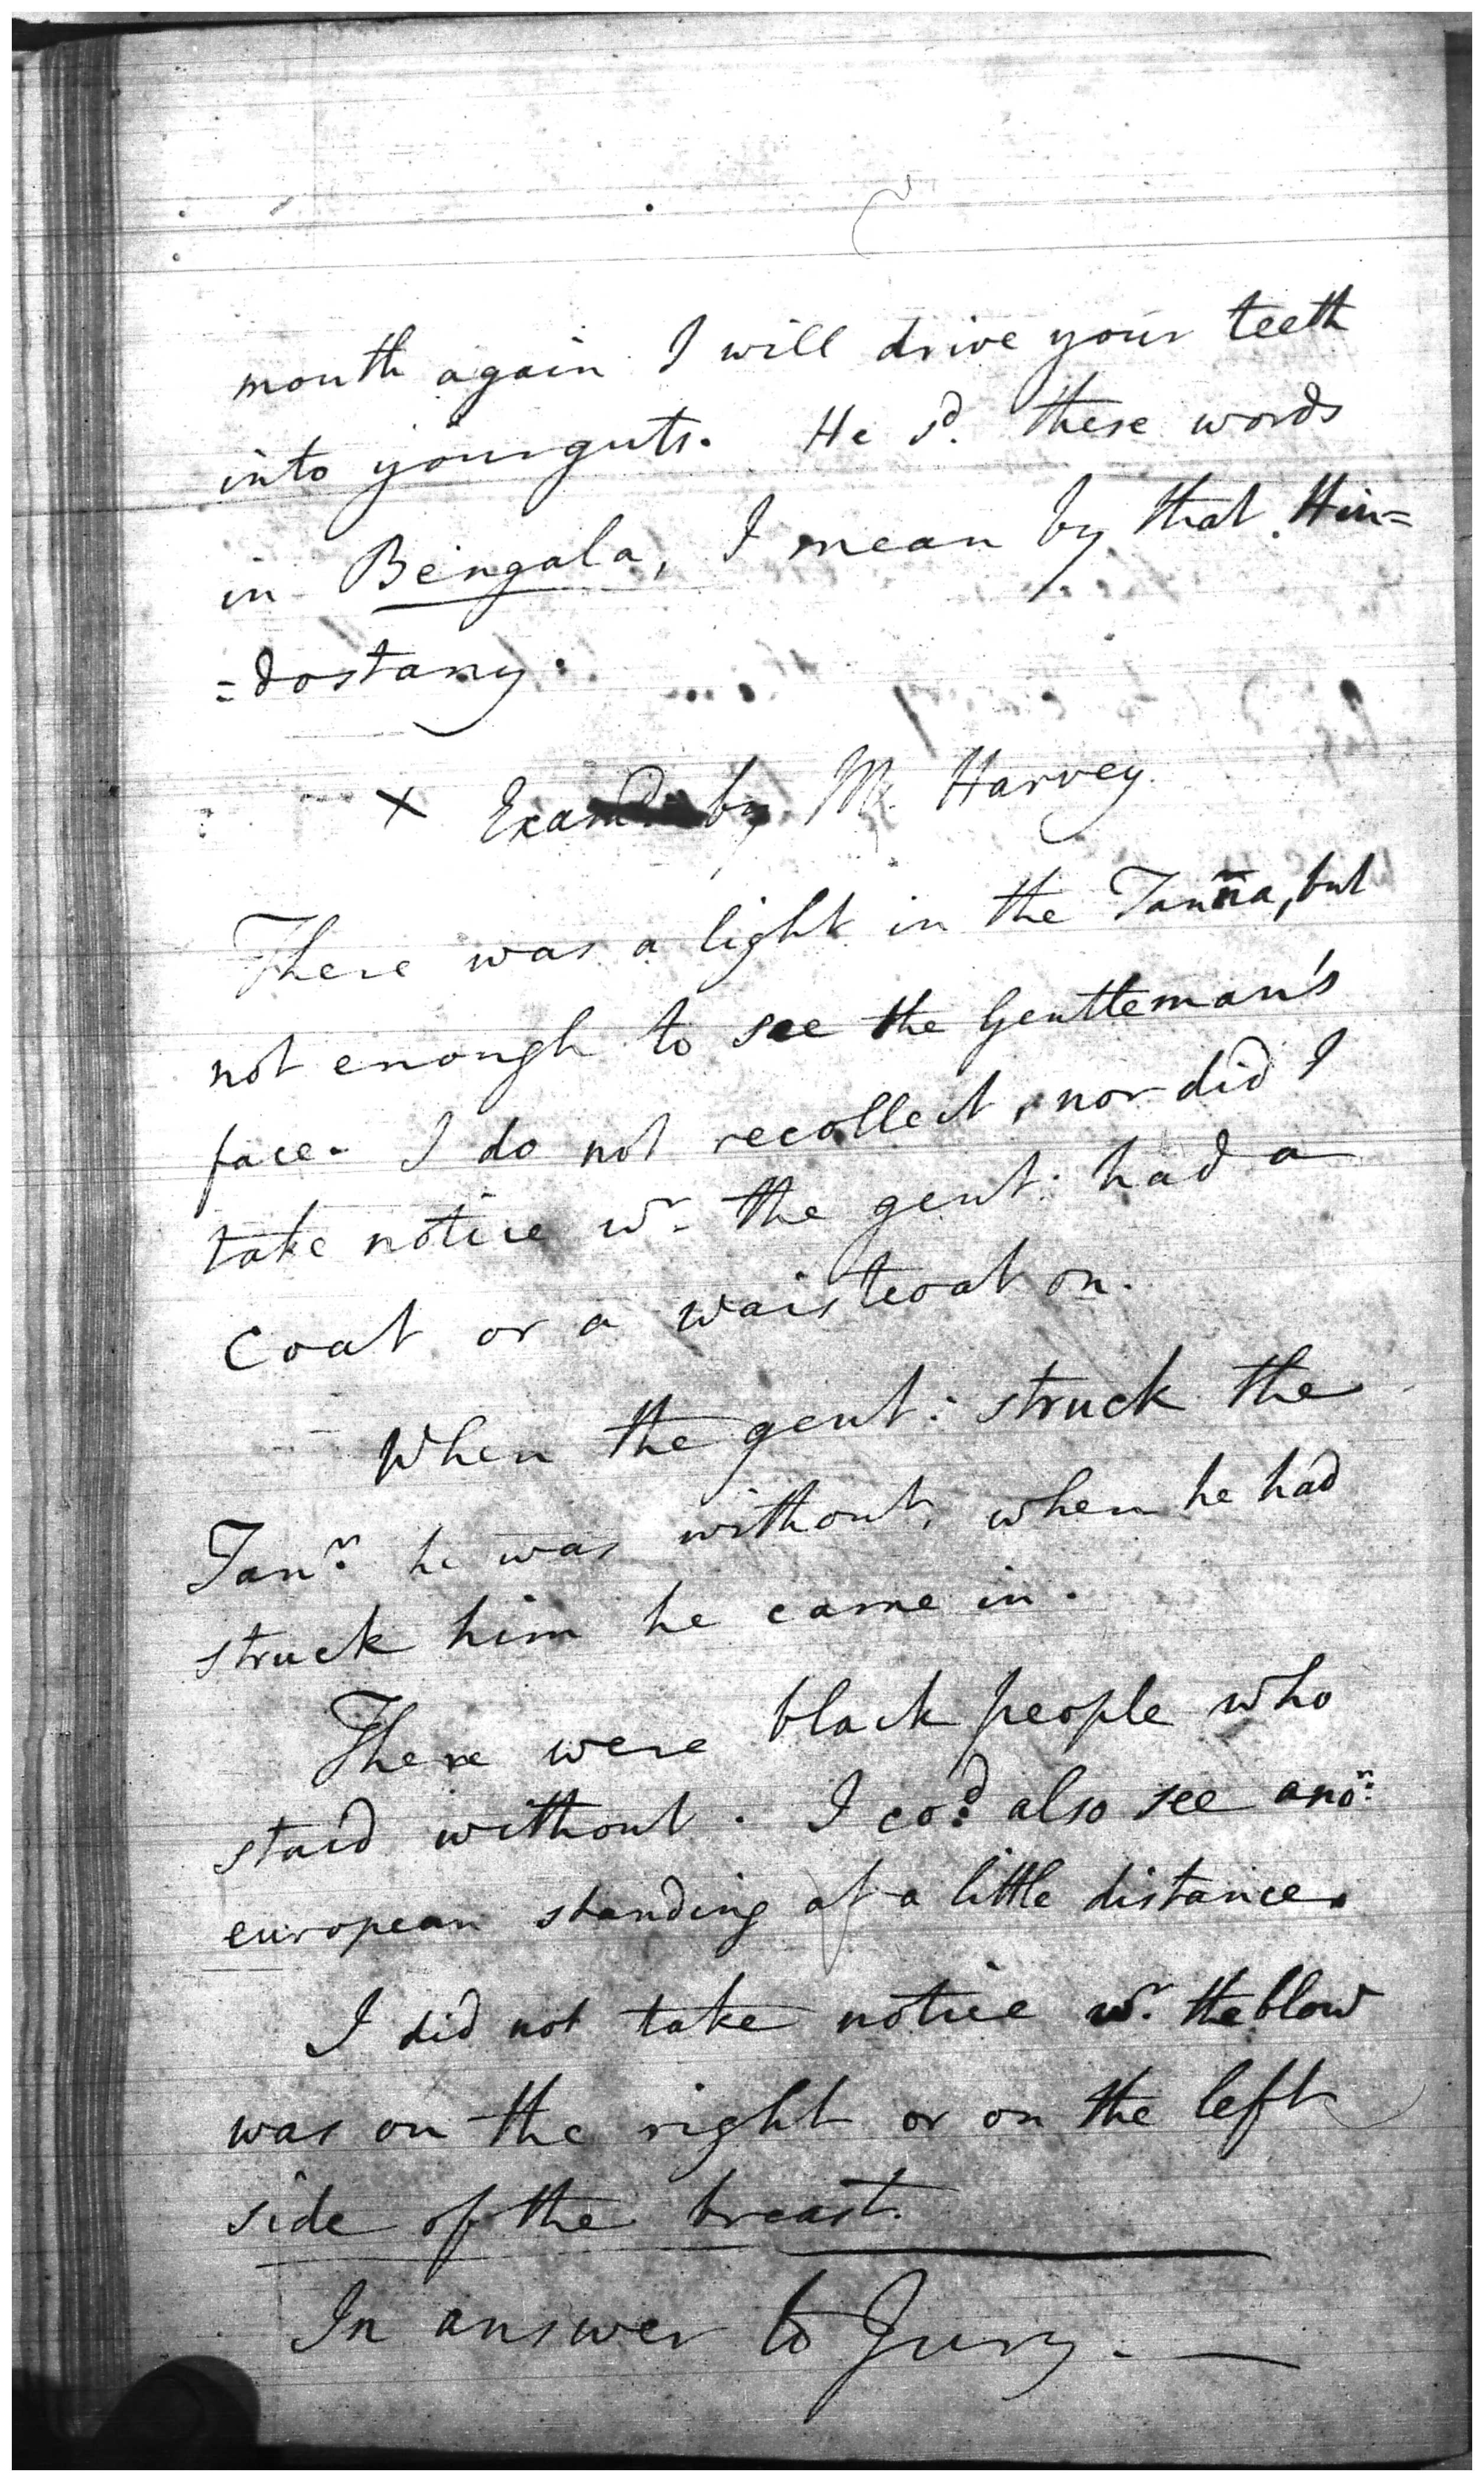 mouth again I will drive your teeth
into your guts. He sd. these words
in Bengala, I mean by that Hin=
=dostany.
x Examd by Mr. Harvey.
There was a light in the Tanna, but
not enough to see the Gentleman's
face. I do not recollect, nor did I
take notice wr. the gent: had a
Coat or a waistcoat on.
When the gent: struck the
Tanr. he was without, when he had
struck him he came in.
There were black people who
staid without. I cod. also see anor:
european standing at a little distance.
I did not take notice wr. the blow
was on the right or on the left
side of the breast.
In answer to Jury. —